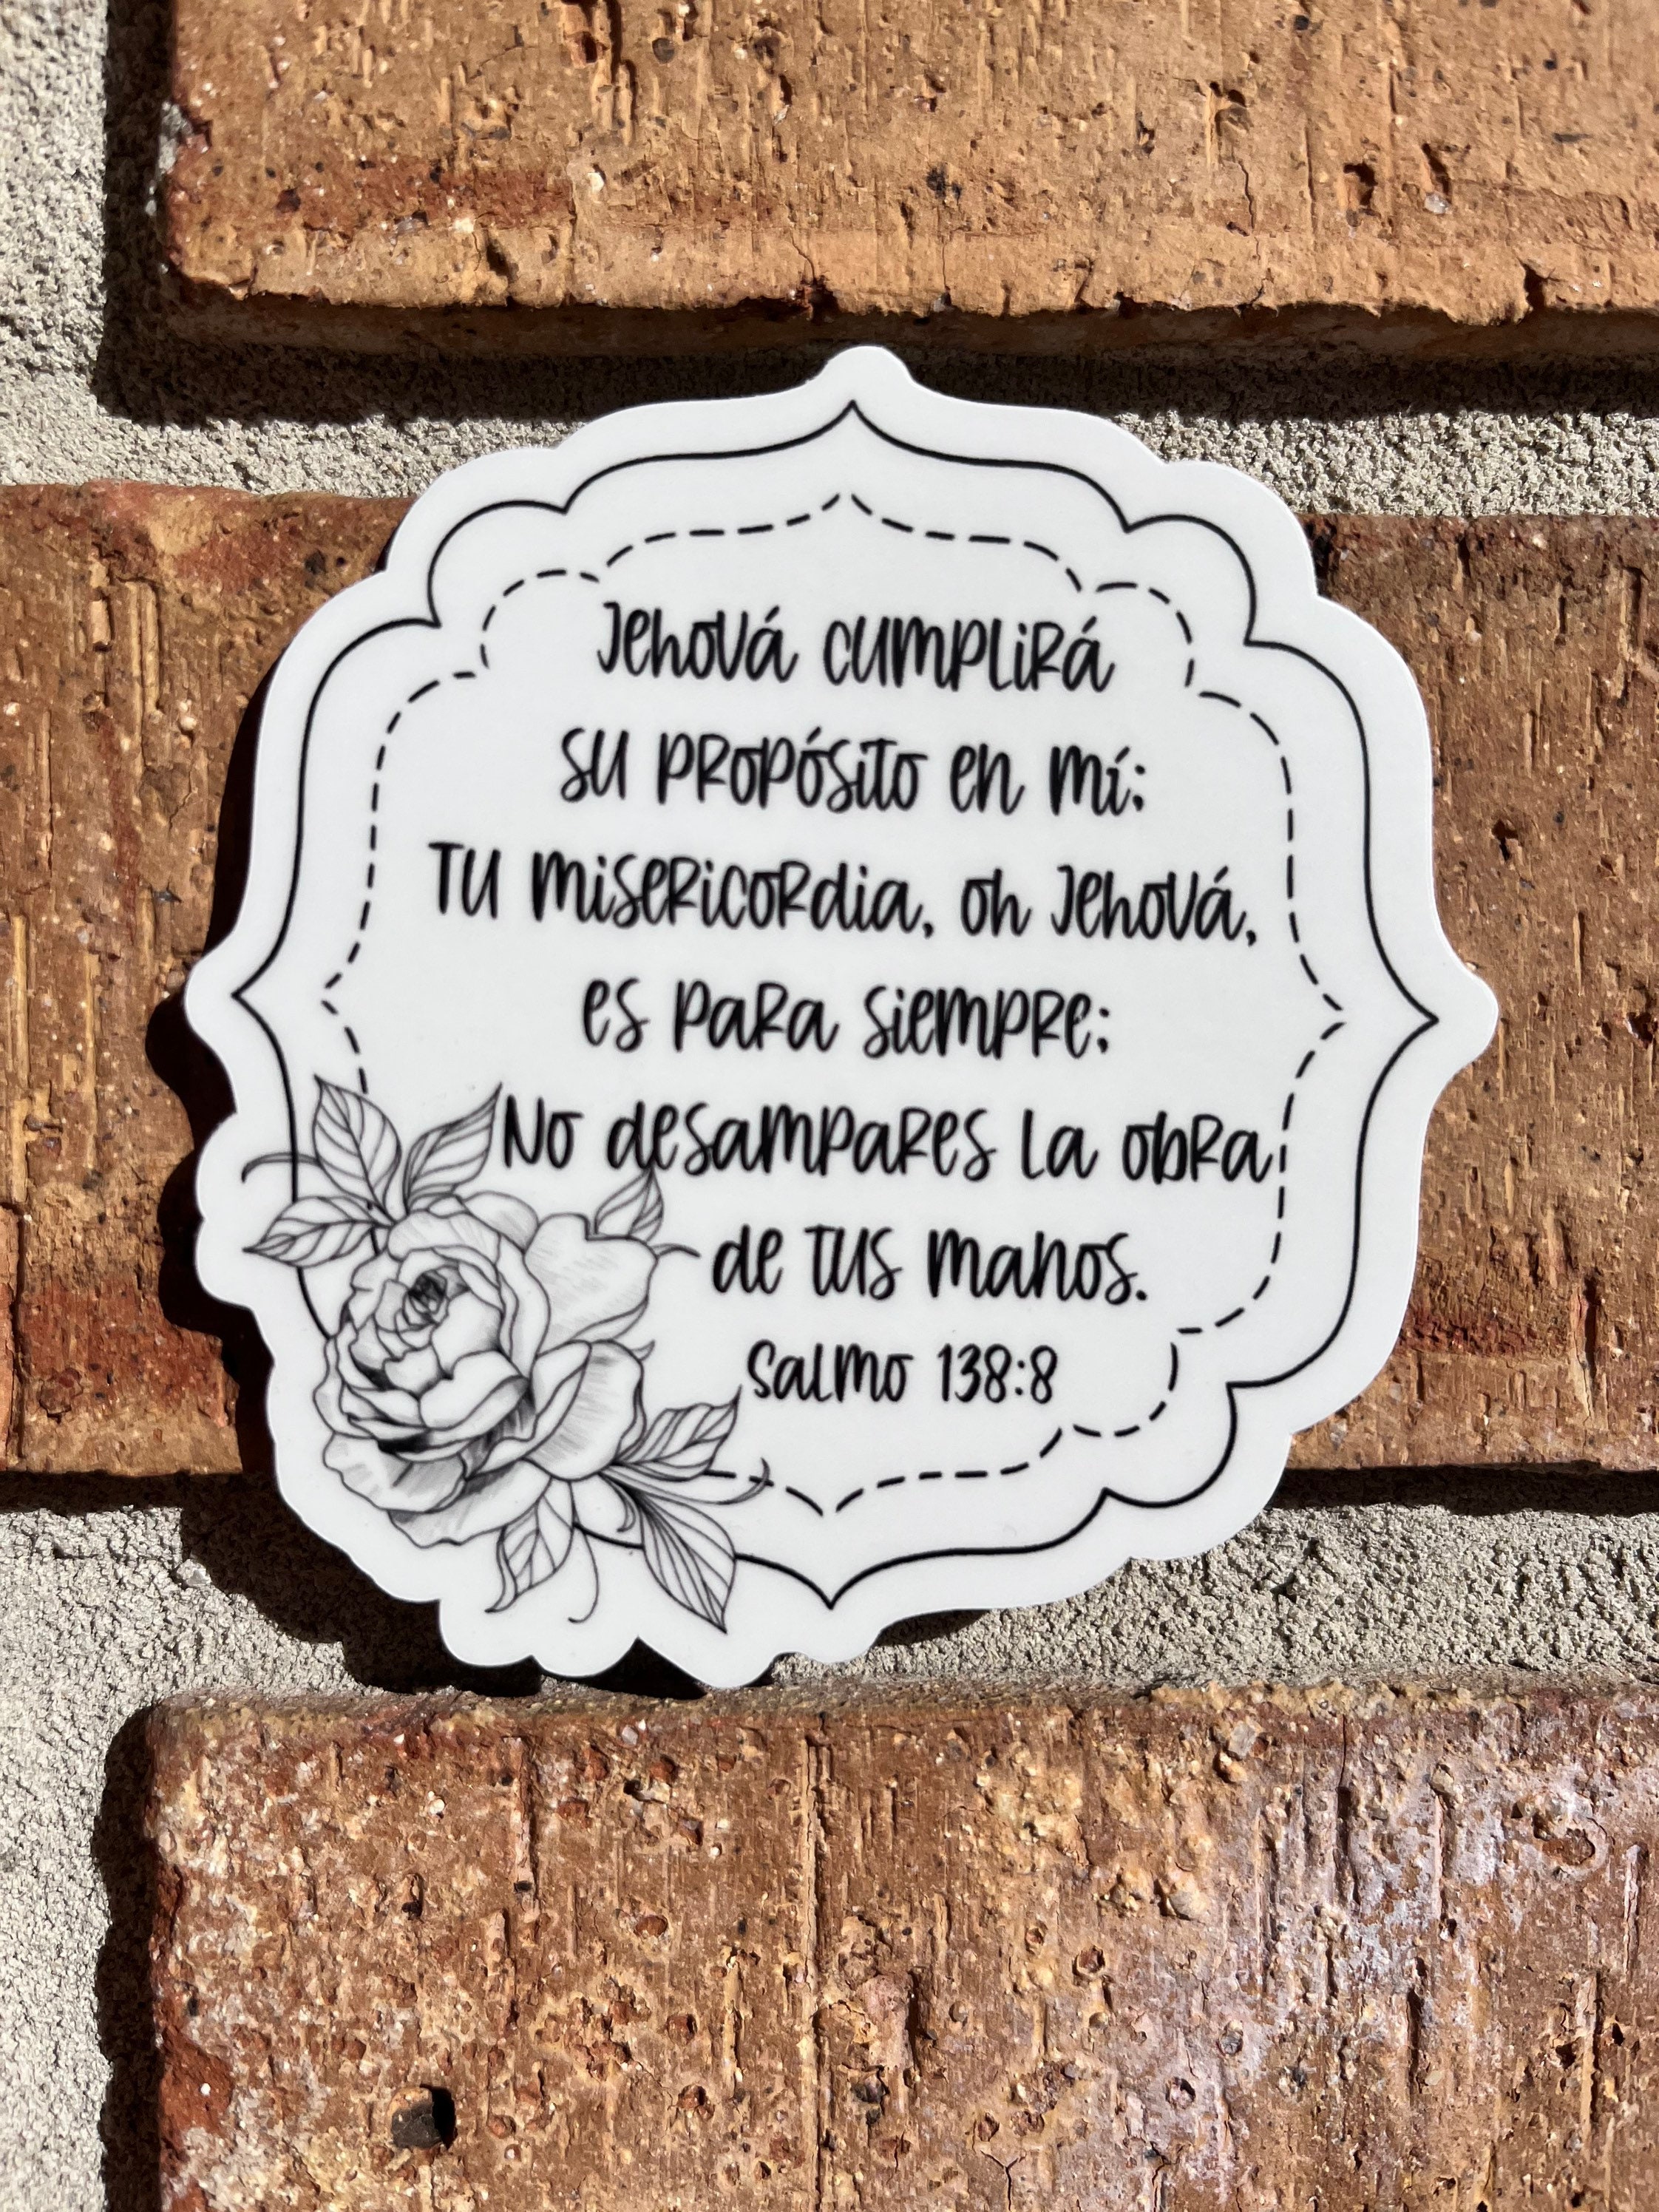 Jehová cumplirá
su propósito en mí;
Tu misericordia, oh Jehová,
es para siempre;
No desampares la obra
de tus manos.
Salmo 138:8